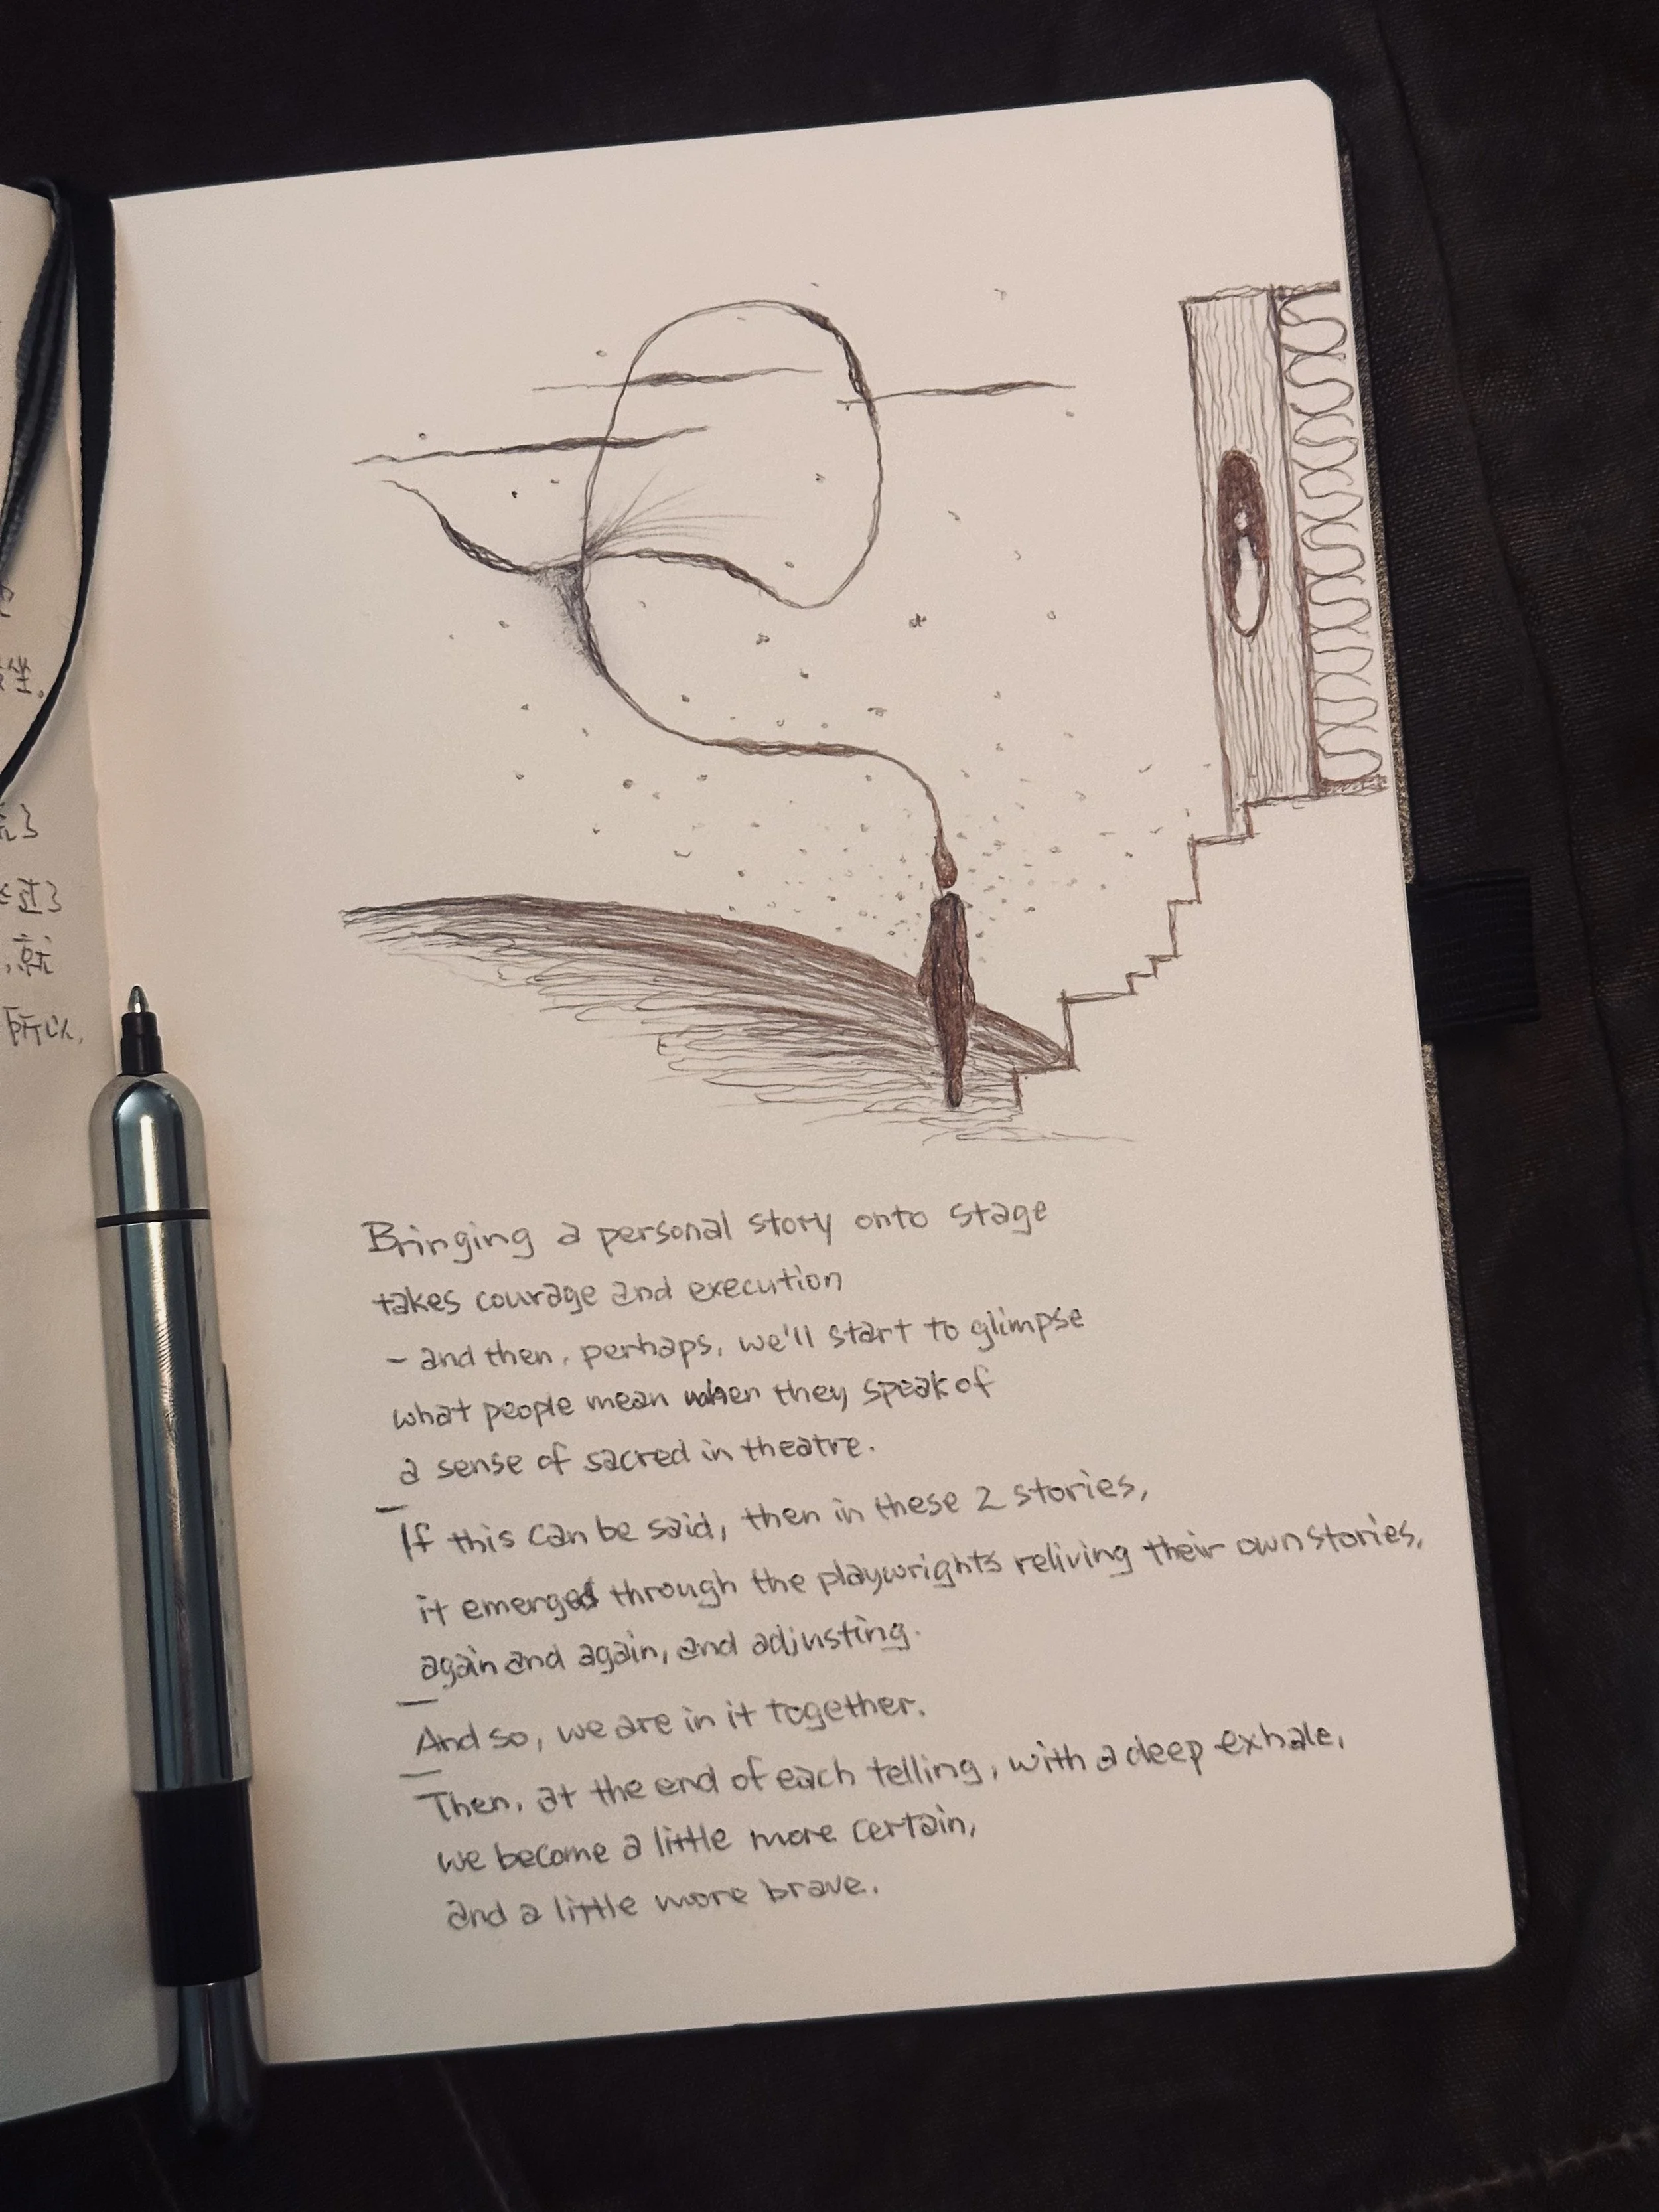 坐。
了
过了
,就
所以,
Bringing a personal story onto stage
takes courage and execution
– and then, perhaps, we'll start to glimpse
what people mean when they speak of
a sense of sacred in theatre.
—
If this can be said, then in these 2 stories,
it emerged through the playwrights reliving their own stories,
again and again, and adjusting.
—
And so, we are in it together.
—
Then, at the end of each telling, with a deep exhale,
we become a little more certain,
and a little more brave.